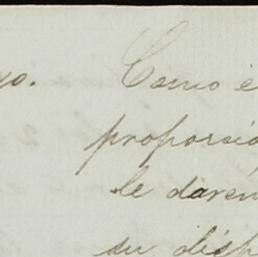 Como é
proporsio
le daren
su disp